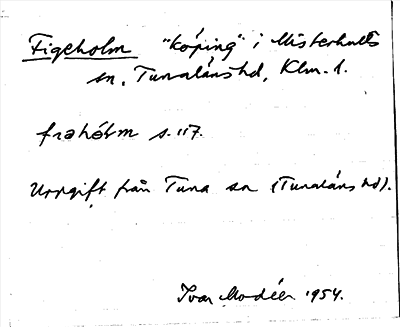 Figeholm "köping" i Misterhults
sn, Tunaläns hd, Klm. l.
s. 117.
Uppgift från Tuna sn (Tunaläns hd).
Ivar Modéer 1954.